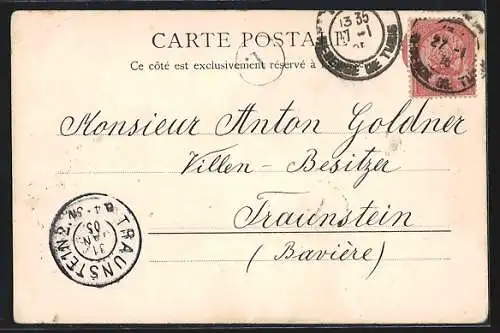 CARTE POSTA
Ce côté est exclusivement réservé à
13 35
27 -1
REGENCE DE TUNIS
27 -1
DE TUNIS
Monsieur Anton Goldner
Villen-Besitzer
Traunstein
(Bavière)
TRAUNSTEIN 2.
31
JAN.
05